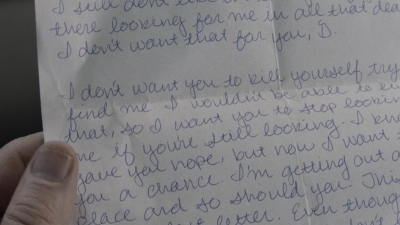 I still don't like
there looking for me in all that dea
I don't want that for you, D.
I don't want you to kill yourself try
find me. I wouldn't be able to
that, so I want you to stop lookin
me if you're still looking. I kn
gave you hope, but now I want
for a chance. I'm getting out
place and so should you. This
letter. Even thoug